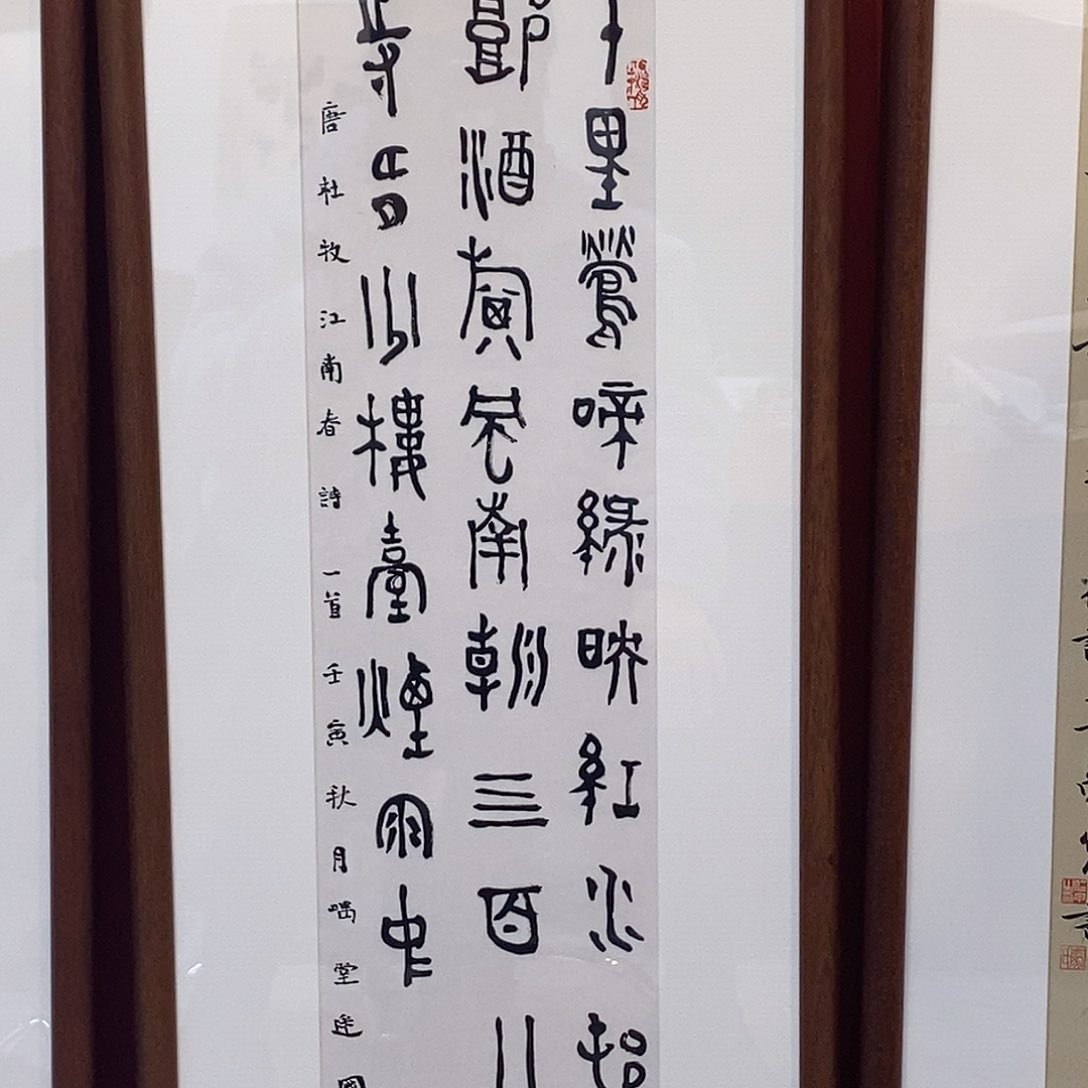 千里鶯啼綠映紅水邨
郭酒旗風南朝亖百八
寺多少樓臺煙雨中
唐杜牧江南春詩一首壬寅秋月喁堂